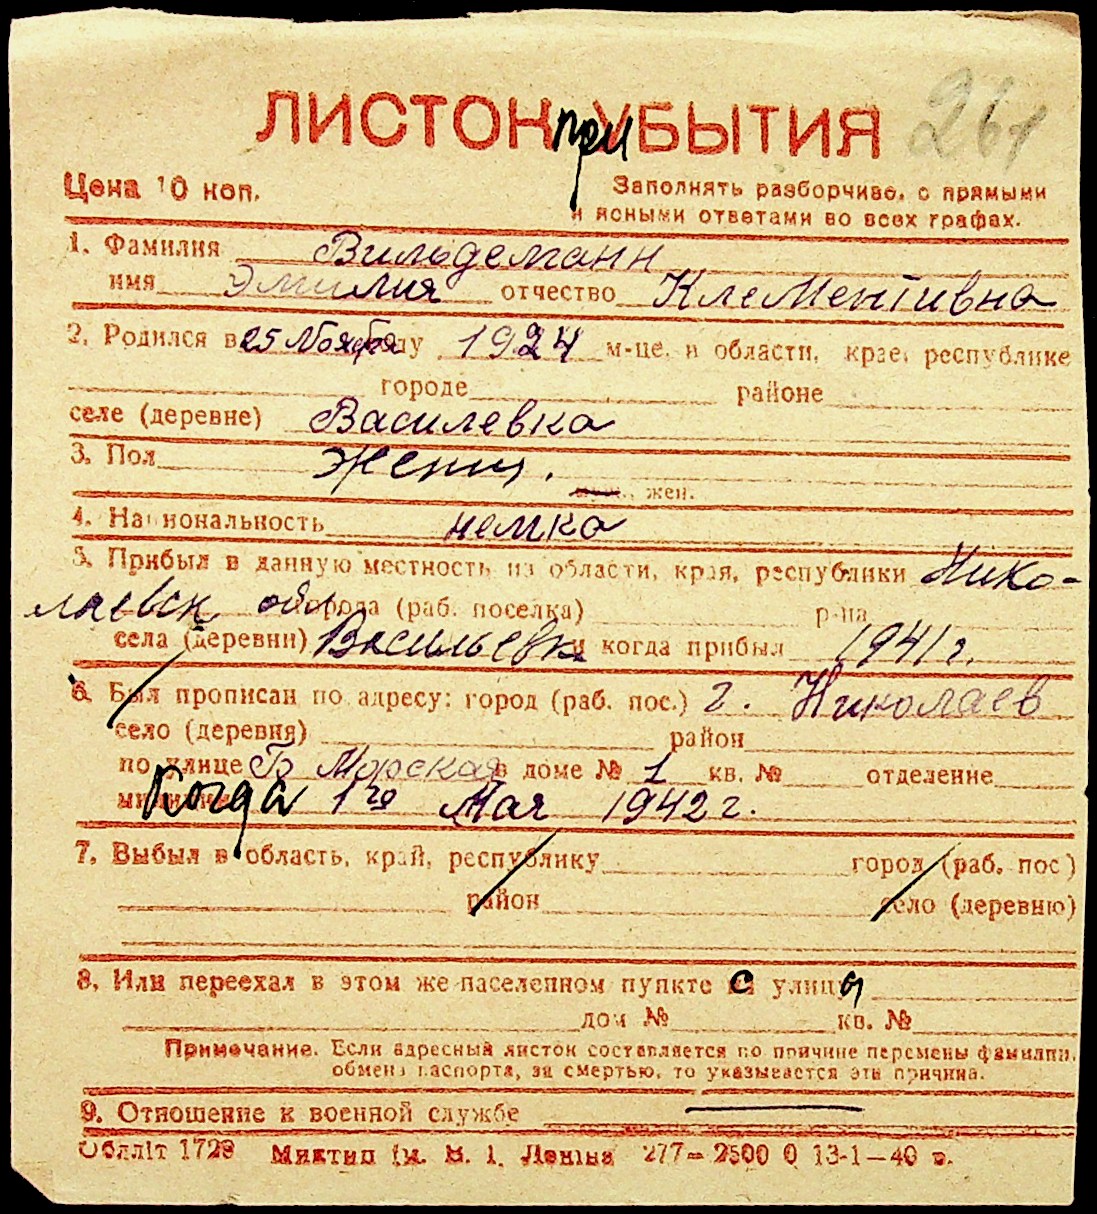 ЛИСТОК при УБЫТИЯ 261
Цена 10 коп.
Заполнять разборчиво, с прямыми
и ясными ответами во всех графах.
1. Фамилия Вильдеманн
имя Эмилия отчество Клементивна
2. Родился в 25 Ноября году 1924 м-це, в области, крае, республике
городе районе
селе (деревне) Василевка
3. Пол Женщ.
муж., жен.
4. Национальность немка
5. Прибыл в данную местность из области, края, республики Нико-
лаевск обл. города (раб. поселка) р-на
села (деревни) Васильевка и когда прибыл 1941 г.
6. Был прописан по адресу: город (раб. пос.) г. Николаев
село (деревня) район
по улице Б Морская в доме № 1 кв. № отделение
милиции Когда 1го Мая 1942 г.
7. Выбыл в область, край, республику город (раб. пос.)
район село (деревню)
8. Или переехал в этом же населенном пункте с улицы
дом № кв. №
Примечание. Если адресный листок составляется по причине перемены фамилии,
обмена паспорта, за смертью, то указывается эта причина.
9. Отношение к военной службе
Обллiт 1729 Миктип iм. В. I. Ленiна 277—2500 0 13-1—40 р.